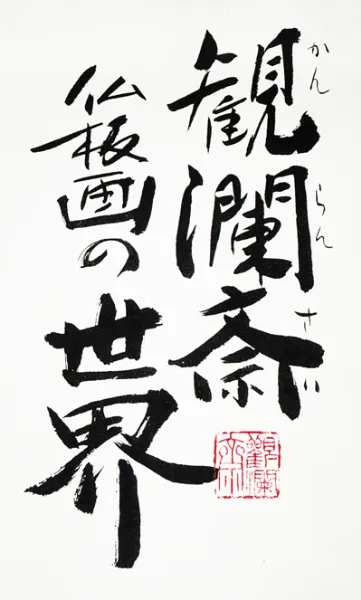 観瀾斎
かんらんさい
仏板画の世界
観瀾斎